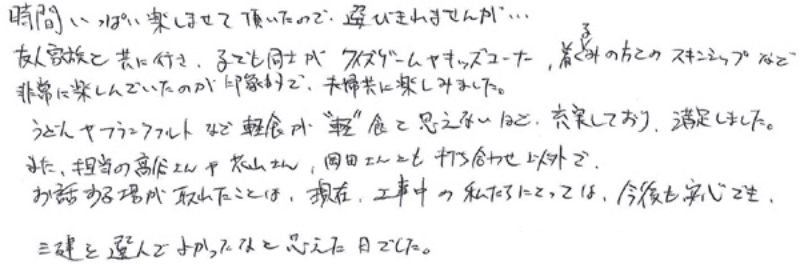 時間いっぱい楽しませて頂いたので、選びきれませんが…
友人家族と共に行き、子ども同士がクイズゲームやキッズコーナー、着ぐるみの方とのスキンシップなどで
非常に楽しんでいたのが印象的で、夫婦共に楽しみました。
うどんやフランクフルトなど軽食が"軽"食と思えないほど、充実しており、満足しました。
また、担当の高谷さんや花山さん、岡田さんとも打ち合わせ以外で、
お話する場が取れたことは、現在、工事中の私たちにとっては、今後も安心でき、
三建を選んでよかったなと思えた日でした。